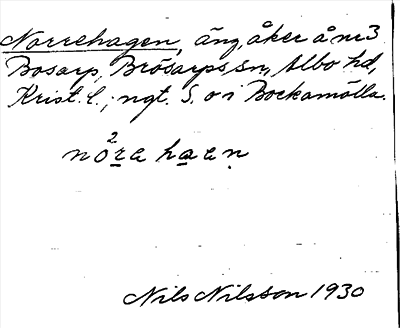 Norrehagen, äng, åker å nr 3
Bosarp, Brösarps sn, Albo hd,
Krist. l.; ngt. S. o i Bockamölla.
2
nöre haen
Nils Nilsson 1930